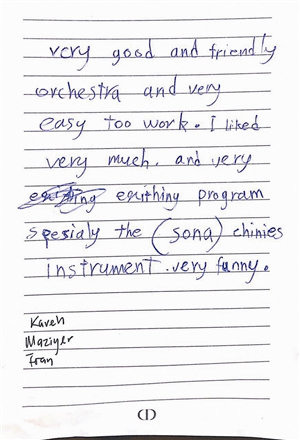 very good and friendly
orchestra and very
easy too work. I liked
very much. and very
erithing program
spesialy the (sona) chinies
instrument. very funny.
Kaveh
Maziyer
Iran